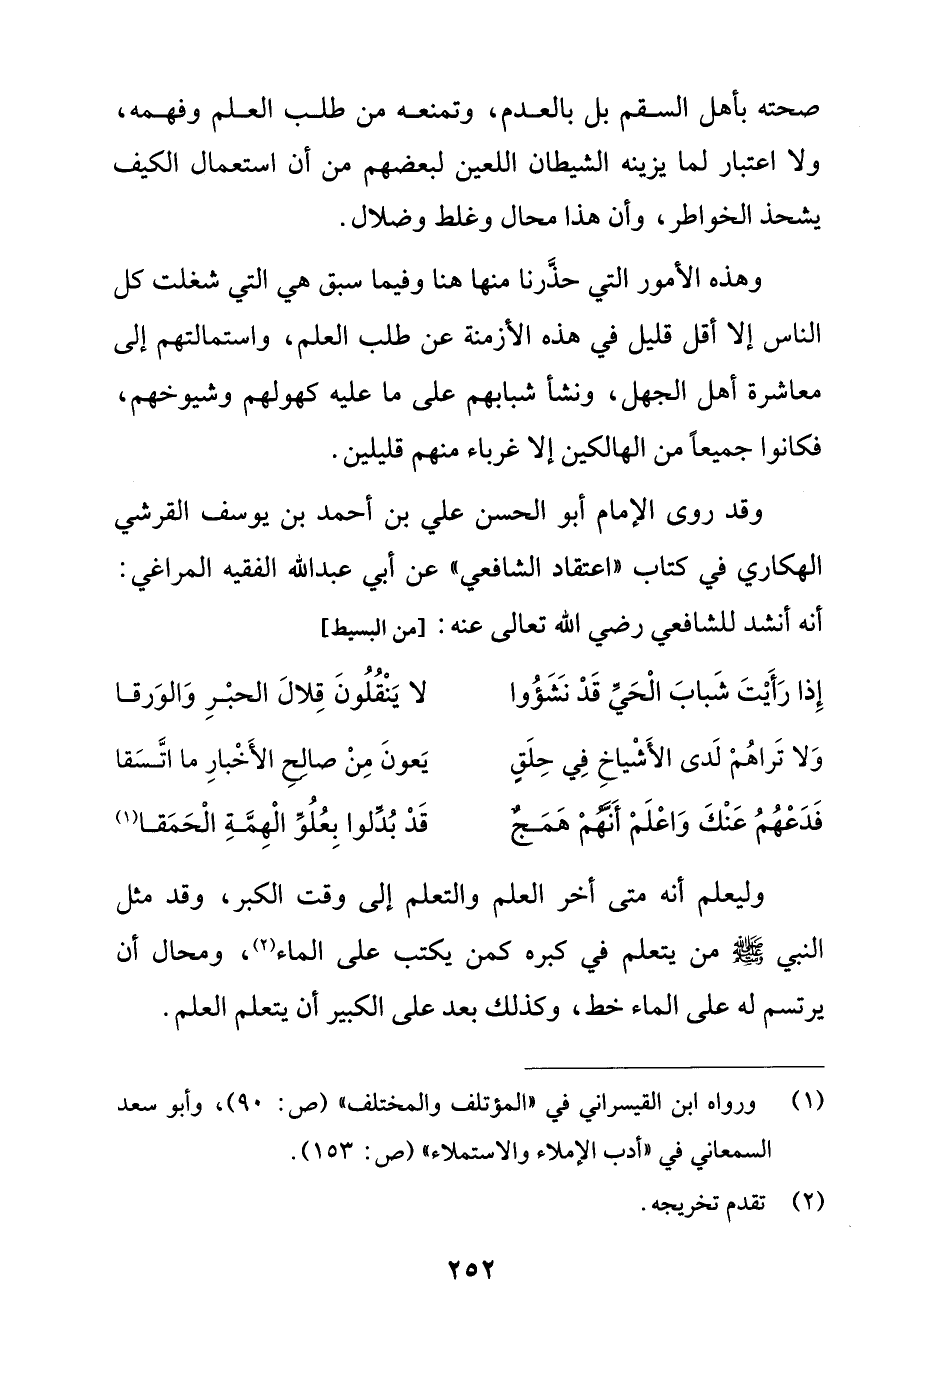 صحته بأهل السقم بل بالعدم، وتمنعه من طلب العلم وفهمه،
ولا اعتبار لما يزينه الشيطان اللعين لبعضهم من أن استعمال الكيف
يشحذ الخواطر، وأن هذا محال وغلط وضلال.
وهذه الأمور التي حذَّرنا منها هنا وفيما سبق هي التي شغلت كل
الناس إلا أقل قليل في هذه الأزمنة عن طلب العلم، واستمالتهم إلى
معاشرة أهل الجهل، ونشأ شبابهم على ما عليه كهولهم وشيوخهم،
فكانوا جميعاً من الهالكين إلا غرباء منهم قليلين.
وقد روى الإمام أبو الحسن علي بن أحمد بن يوسف القرشي
الهكاري في كتاب «اعتقاد الشافعي» عن أبي عبدالله الفقيه المراغي:
أنه أنشد للشافعي رضي الله تعالى عنه: [من البسيط]
إِذا رَأَيْتَ شَبابَ الْحَيِّ قَدْ نَشَؤُوا لا يَنْقُلُونَ قِلالَ الحبْرِ وَالوَرقـا
وَلا تَراهُمْ لَدى الأَشْياخِ فِي حِلَقٍ يَعونَ مِنْ صالِحِ الأَخْبارِ ما اتَّـسَقا
فَدَعْهُمُ عَنْكَ وَاعْلَمْ أَنَّهُمْ هَمَـجٌ قَدْ بُدِّلوا بِعُلُوِّ الْهِمَّةِ الْحَمَقـا(١)
وليعلم أنه متى أخر العلم والتعلم إلى وقت الكبر، وقد مثل
النبي ﷺ من يتعلم في كبره كمن يكتب على الماء(٢)، ومحال أن
يرتسم له على الماء خط، وكذلك بعد على الكبير أن يتعلم العلم.
(١) ورواه ابن القيسراني في «المؤتلف والمختلف» (ص: ٩٠)، وأبو سعد
السمعاني في «أدب الإملاء والاستملاء» (ص: ١٥٣).
(٢) تقدم تخريجه.
٢٥٢